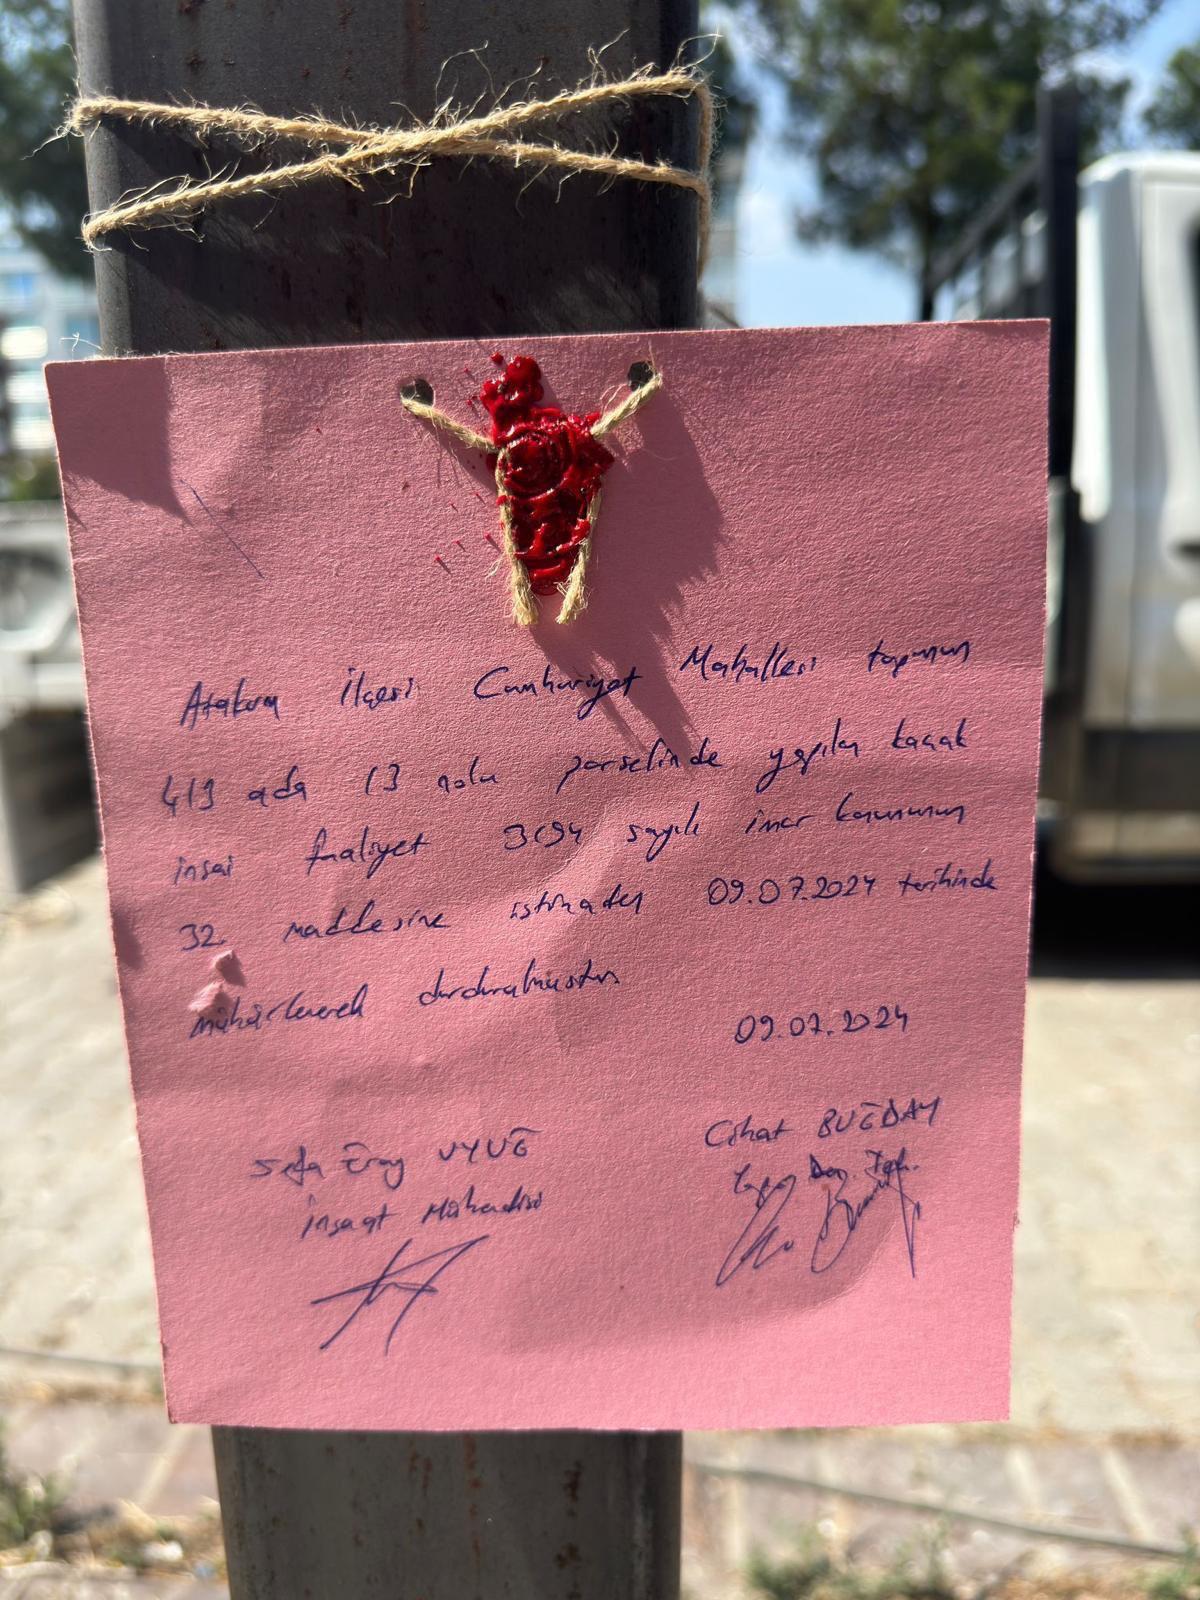 Atakum İlçesi Cumhuriyet Mahallesi tapunun
413 ada 13 nolu parselinde yapılan kaçak
inşai faaliyet 3194 sayılı imar kanununun
32. maddesine istinaden 09.07.2024 tarihinde
mühürlenerek durdurulmuştur.
09.07.2024
Cihat BUĞDAY
Sefa Eray UYUĞ
İnşaat Mühendisi